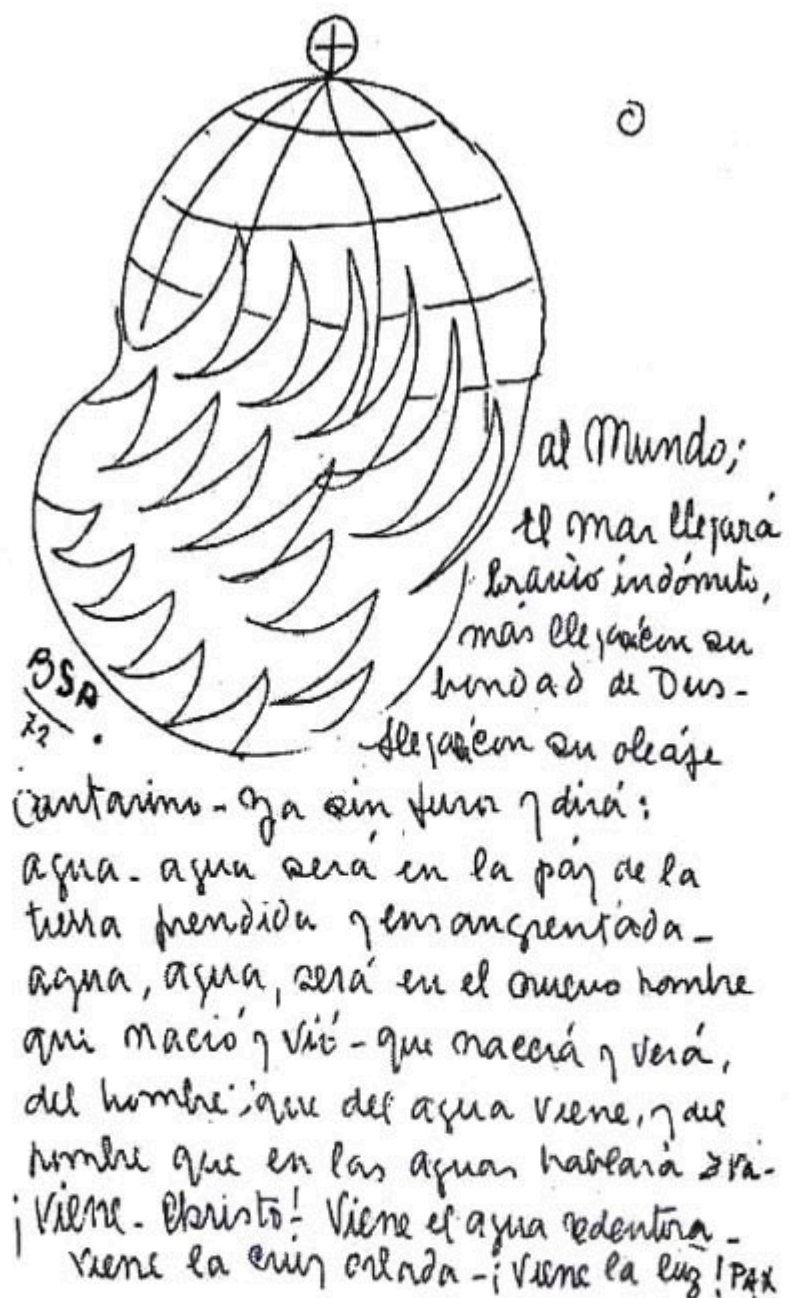 al Mundo;
El mar llegará
bravío indómito,
más llegará con su
bondad de Dios-
llegará con su oleaje
cantarino - ya sin furor y dirá:
agua - agua será en la páz de la
tierra prendida y ensangrentada -
agua, agua, será en el nuevo hombre
que nació y vió - que nacerá y verá,
del hombre que del agua viene, y del
hombre que en las aguas hablará
¡Viene - Christo! Viene el agua redentora -
viene la cruz orlada - ¡Viene la luz! PAX
BSP
72